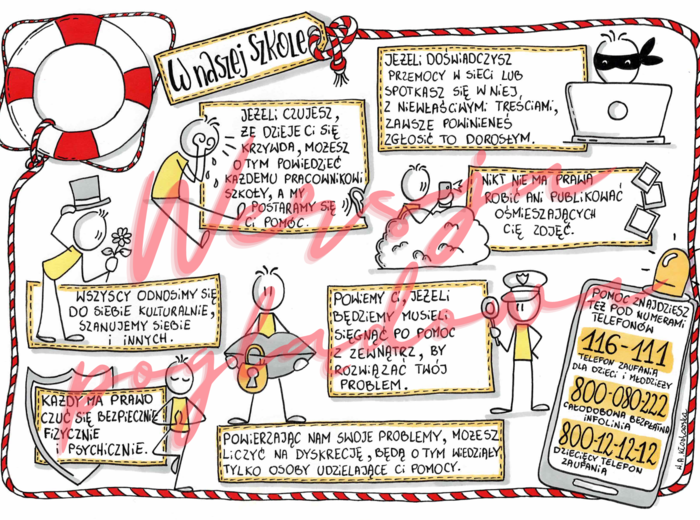 W naszej szkole
JEŻELI DOŚWIADCZYSZ
PRZEMOCY W SIECI LUB
SPOTKASZ SIĘ W NIEJ,
Z NIEWŁAŚCIWYMI TREŚCIAMI,
ZAWSZE POWINIENEŚ
ZGŁOSIĆ TO DOROSŁYM.
JEŻELI CZUJESZ,
ŻE DZIEJE CI SIĘ
KRZYWDA, MOŻESZ
O TYM POWIEDZIEĆ
KAŻDEMU PRACOWNIKOWI
SZKOŁY, A MY
POSTARAMY SIĘ
CI POMÓC.
NIKT NIE MA PRAWA
ROBIĆ ANI PUBLIKOWAĆ
OŚMIESZAJĄCYCH
CIĘ ZDJĘĆ.
WSZYSCY ODNOSIMY SIĘ
DO SIEBIE KULTURALNIE,
SZANUJEMY SIEBIE
I INNYCH.
POWIEMY CI, JEŻELI
BĘDZIEMY MUSIELI
SIĘGNĄĆ PO POMOC
Z ZEWNĄTRZ, BY
ROZWIĄZAĆ TWÓJ
PROBLEM.
POMOC ZNAJDZIESZ
TEŻ POD NUMERAMI
TELEFONÓW
116-111
TELEFON ZAUFANIA
DLA DZIECI I MŁODZIEŻY
800-080-222
CAŁODOBOWA BEZPŁATNA
INFOLINIA
800-12-12-12
DZIECIĘCY TELEFON
ZAUFANIA
KAŻDY MA PRAWO
CZUĆ SIĘ BEZPIECZNIE
FIZYCZNIE
PSYCHICZNIE.
POWIERZAJĄC NAM SWOJE PROBLEMY, MOŻESZ
LICZYĆ NA DYSKRECJĘ, BĘDĄ O TYM WIEDZIAŁY
TYLKO OSOBY UDZIELAJĄCE CI POMOCY.
Wersja
poglądowa